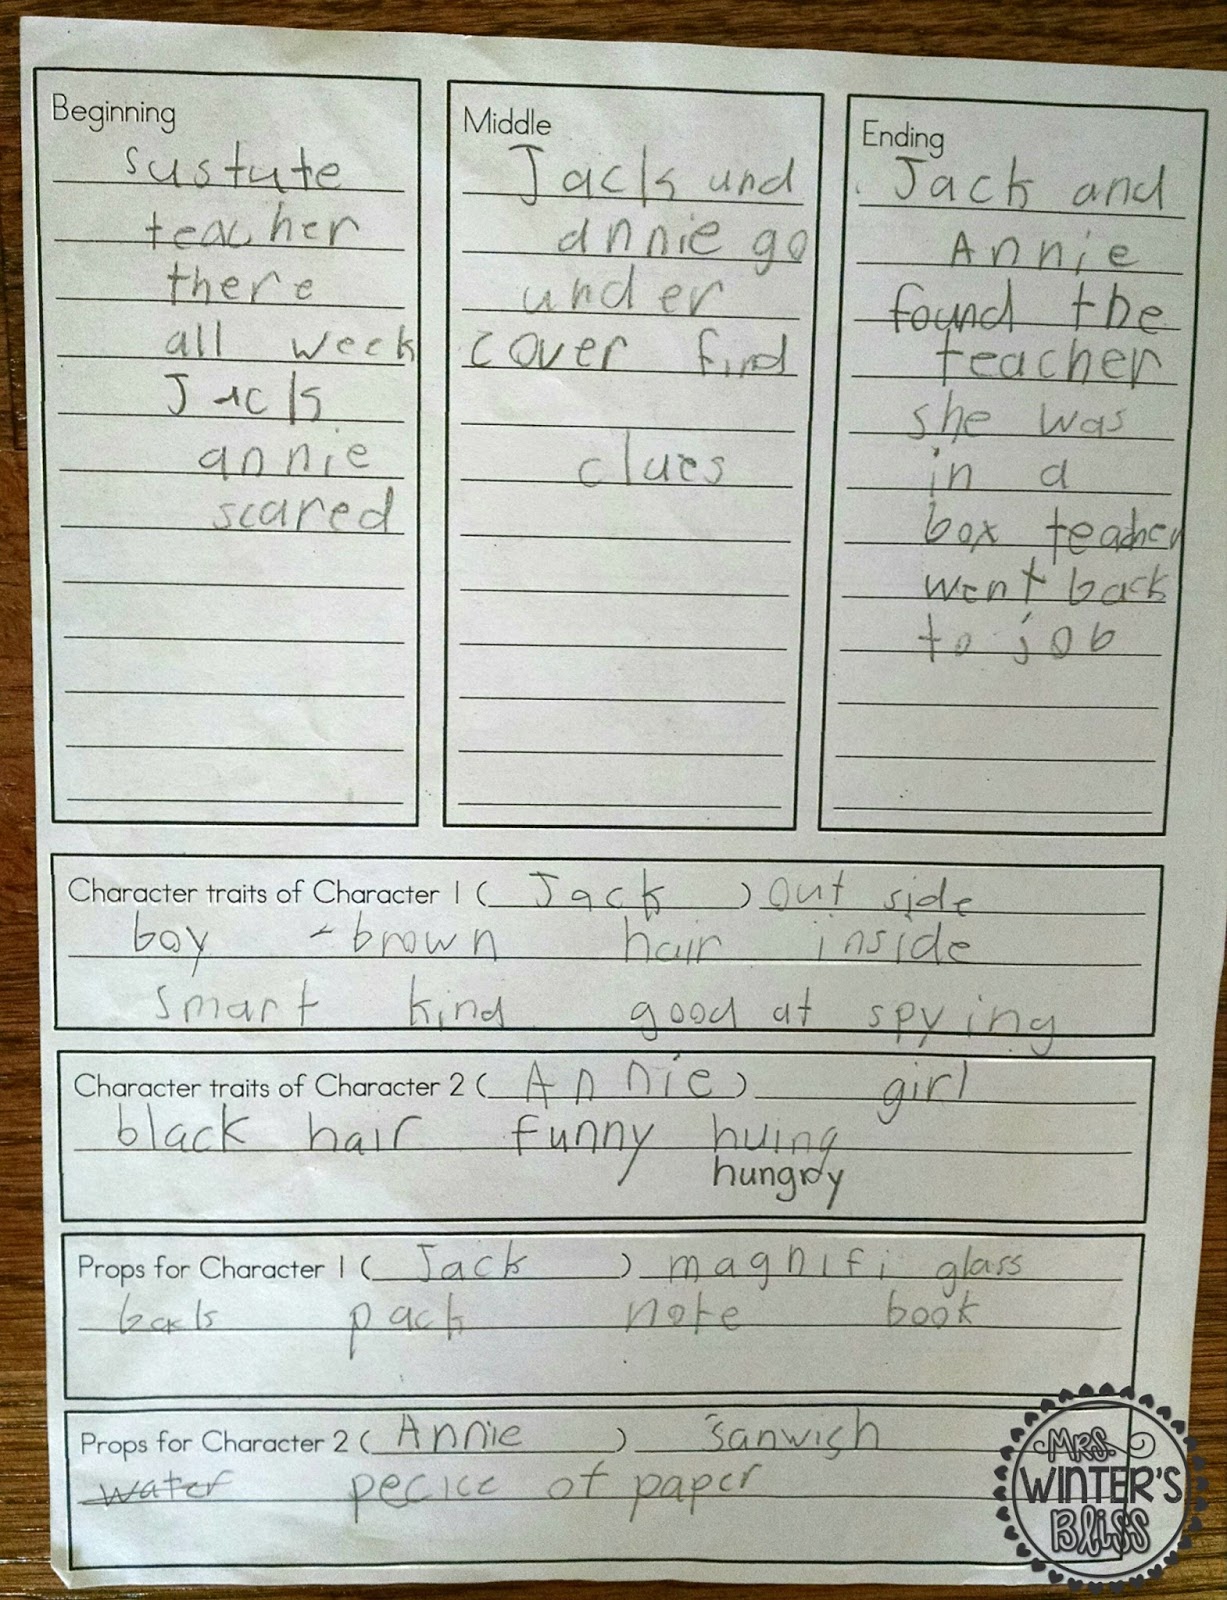 Beginning
sustute
teacher
there
all week
Jack
annie
scared
Middle
Jack und
annie go
under
cover find
clues
Ending
Jack and
Annie
found the
teacher
she was
in a
box teacher
went back
to job
Character traits of Character 1 ( Jack ) out side
boy - brown hair inside
smart kind good at spying
Character traits of Character 2 ( Annie ) girl
black hair funny huing
hungry
Props for Character 1 ( Jack ) magnifi glass
back pack note book
Props for Character 2 ( Annie ) sanwish
water pecice of paper
MRS.
WINTER'S
Bliss